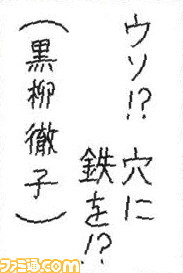 ウソ!?
穴に
鉄を!?
(黒柳徹子)
ファミ通.com